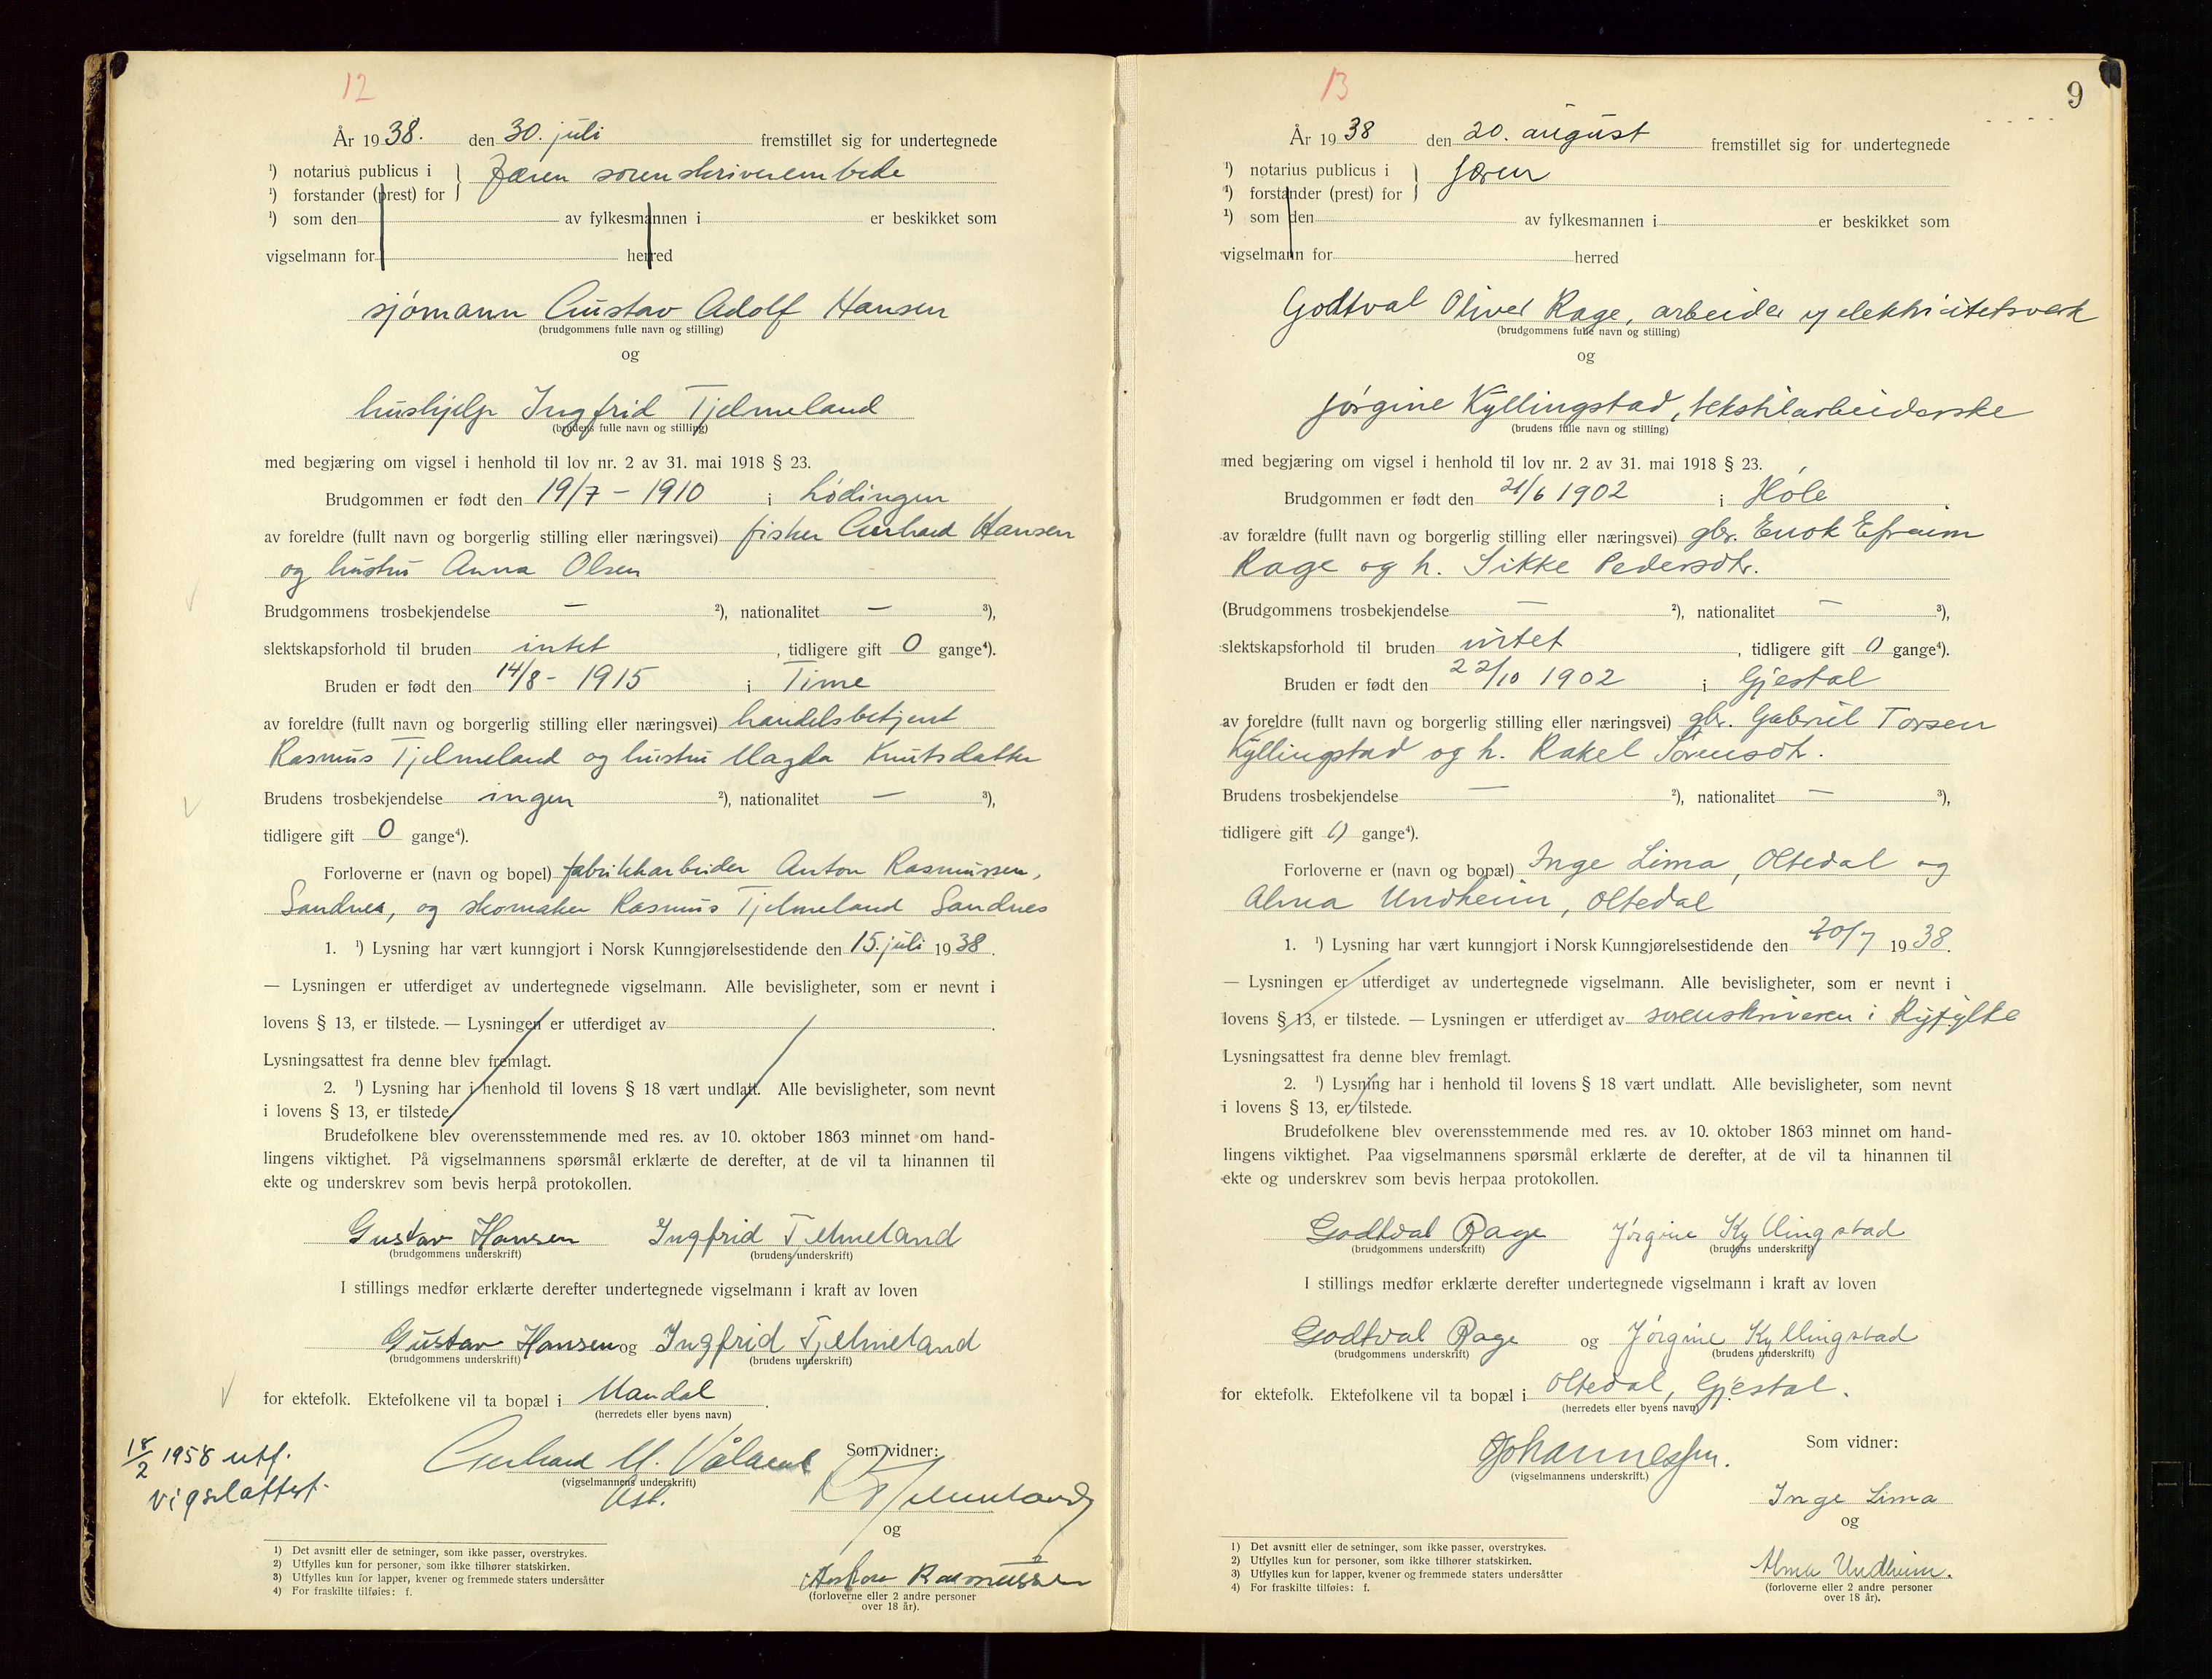 12
År 1938. den 30. juli fremstillet sig for undertegnede
¹) notarius publicus i } Jæren sorenskriverembede
¹) forstander (prest) for
¹) som den av fylkesmannen i er beskikket som
vigselmann for herred
sjømann Gustav Adolf Hansen
(brudgommens fulle navn og stilling)
og
hushjelp Ingfrid Tjelmeland
(brudens fulle navn og stilling)
med begjæring om vigsel i henhold til lov nr. 2 av 31. mai 1918 § 23.
Brudgommen er født den 19/7 - 1910 i Lödingen
av foreldre (fullt navn og borgerlig stilling eller næringsvei) fisker Gerhard Hansen
og hustru Anna Olsen
Brudgommens trosbekjendelse — ²), nationalitet — ³),
slektskapsforhold til bruden intet , tidligere gift 0 gange⁴).
Bruden er født den 14/8 - 1915 i Time
av foreldre (fullt navn og borgerlig stilling eller næringsvei) handelsbetjent
Rasmus Tjelmeland og hustru Magda Knutsdatter
Brudens trosbekjendelse ingen ²), nationalitet — ³),
tidligere gift 0 gange⁴).
Forloverne er (navn og bopel) fabrikkarbeider Anton Rasmussen,
Sandnes, og skomaker Rasmus Tjelmeland Sandnes
1. ¹) Lysning har vært kunngjort i Norsk Kunngjørelsestidende den 15. juli 1938.
— Lysningen er utferdiget av undertegnede vigselmann. Alle bevisligheter, som er nevnt i
lovens § 13, er tilstede. — Lysningen er utferdiget av .
Lysningsattest fra denne blev fremlagt.
2. ¹) Lysning har i henhold til lovens § 18 vært undlatt. Alle bevisligheter, som nevnt
i lovens § 13, er tilstede.
Brudefolkene blev overensstemmende med res. av 10. oktober 1863 minnet om hand-
lingens viktighet. På vigselmannens spørsmål erklærte de derefter, at de vil ta hinannen til
ekte og underskrev som bevis herpå protokollen.
Gustav Hansen Ingfrid Tjelmeland
(brudgommens underskrift) (brudens underskrift)
I stillings medfør erklærte derefter undertegnede vigselmann i kraft av loven
Gustav Hansen og Ingfrid Tjelmeland
(brudgommens underskrift) (brudens underskrift)
for ektefolk. Ektefolkene vil ta bopæl i Mandal .
(herredets eller byens navn)
18/2 1958 utf.
vigselattest.
Gerhard M. Våland
(vigselmannens underskrift)
Ast.
Som vidner:
R Tjelmeland
og
Anton Rasmussen
(forloverne eller 2 andre personer
over 18 år).
1) Det avsnitt eller de setninger, som ikke passer, overstrykes.
2) Utfylles kun for personer, som ikke tilhører statskirken.
3) Utfylles kun for lapper, kvener og fremmede staters undersåtter
4) For fraskilte tilføies: f.
13
9
År 1938 den 20. august fremstillet sig for undertegnede
¹) notarius publicus i } Jæren
¹) forstander (prest) for
¹) som den av fylkesmannen i er beskikket som
vigselmann for herred
Godtval Oliver Rage, arbeider v/ elektricitetsverk
(brudgommens fulle navn og stilling)
og
Jørgine Kyllingstad, tekstilarbeiderske
(brudens fulle navn og stilling)
med begjæring om vigsel i henhold til lov nr. 2 av 31. mai 1918 § 23.
Brudgommen er født den 21/6 1902 i Høle
av forældre (fullt navn og borgerlig stilling eller næringsvei) gbr. Enok Efraim
Rage og h. Sikke Pedersdtr.
(Brudgommens trosbekjendelse — ²), nationalitet — ³),
slektskapsforhold til bruden intet , tidligere gift 0 gange⁴).
Bruden er født den 22/10 1902 i Gjestal
av foreldre (fullt navn og borgerlig stilling eller næringsvei) gbr. Gabriel Torsen
Kyllingstad og h. Rakel Sørensdtr.
Brudens trosbekjendelse — ²), nationalitet — ³),
tidligere gift 0 gange⁴).
Forloverne er (navn og bopæl) Inge Lima, Oltedal og
Alma Undheim, Oltedal
1. ¹) Lysning har vært kunngjort i Norsk Kunngjørelsestidende den 20/7 1938.
— Lysningen er utferdiget av undertegnede vigselmann. Alle bevisligheter, som er nevnt i
lovens § 13, er tilstede. — Lysningen er utferdiget av sorenskriveren i Ryfylke
Lysningsattest fra denne blev fremlagt.
2. ¹) Lysning har i henhold til lovens § 18 vært undlatt. Alle bevisligheter, som nevnt
i lovens § 13, er tilstede.
Brudefolkene blev overensstemmende med res. av 10. oktober 1863 minnet om hand-
lingens viktighet. Paa vigselmannens spørsmål erklærte de derefter, at de vil ta hinannen til
ekte og underskrev som bevis herpaa protokollen.
Godtval Rage Jørgine Kyllingstad
(brudgommens underskrift) (brudens underskrift)
I stillings medfør erklærte derefter undertegnede vigselmann i kraft av loven
Godtval Rage og Jørgine Kyllingstad
(brudgommens underskrift) (brudens underskrift)
for ektefolk. Ektefolkene vil ta bopæl i Oltedal, Gjestal.
(herredets eller byens navn)
Johannessen.
(vigselmannens underskrift.)
Som vidner:
Inge Lima
og
Alma Undheim.
(forloverne eller 2 andre personer
over 18 år).
1) Det avsnitt eller de setninger, som ikke passer, overstrykes.
2) Utfylles kun for personer, som ikke tilhører statskirken.
3) Utfylles kun for lapper, kvener og fremmede staters undersåtter
4) For fraskilte tilføies: f.